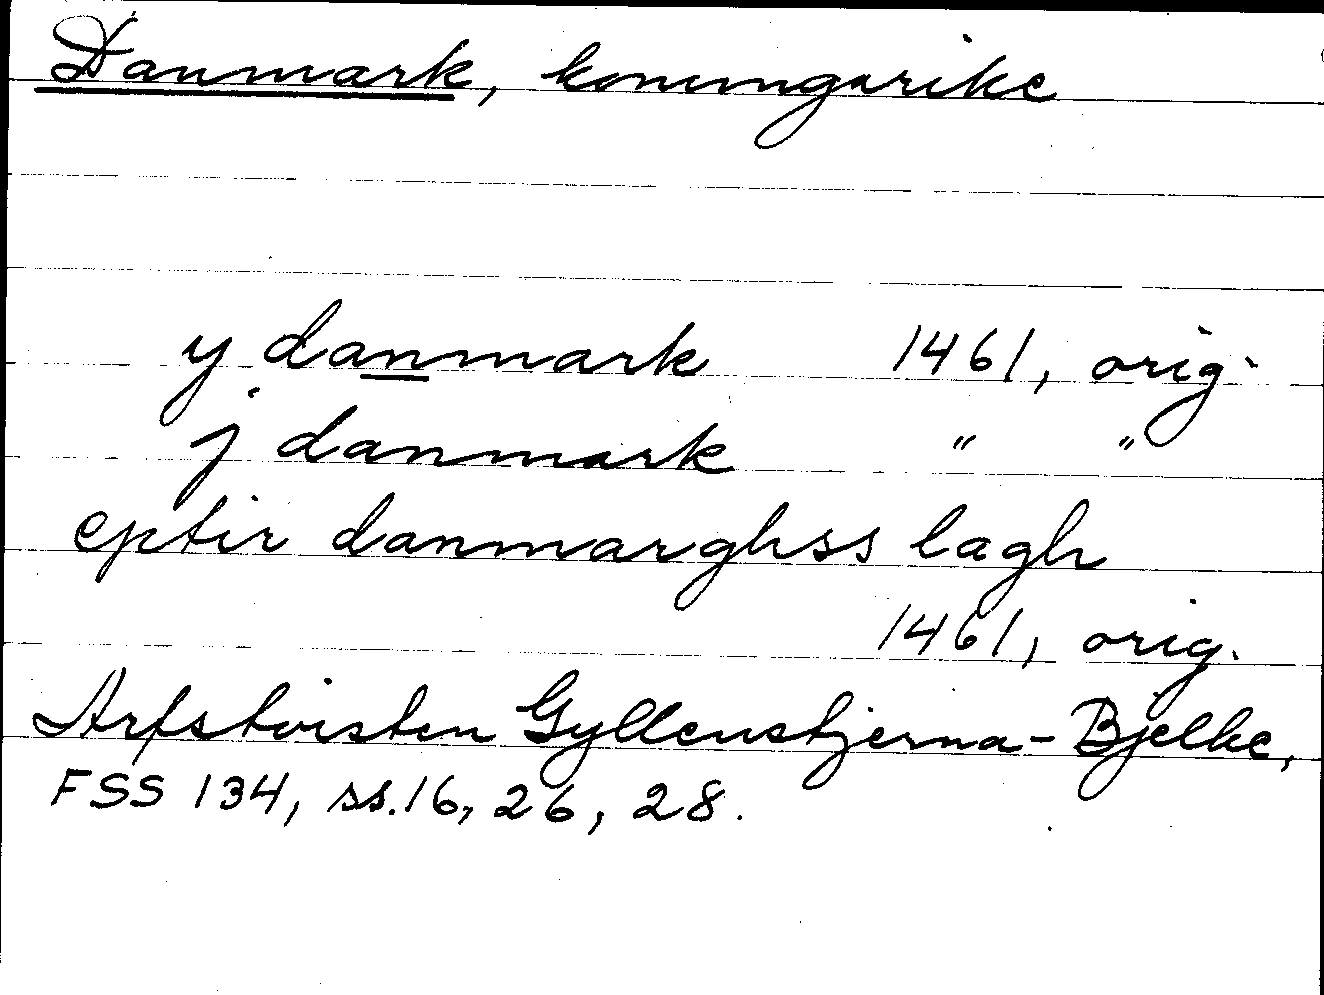 Danmark, konungarike
y danmark 1461, orig.
j danmark " "
eptir danmarghss lagh
1461, orig.
Arfstvisten Gyllenstjerna-Bjelke,
FSS 134, ss. 16, 26, 28.